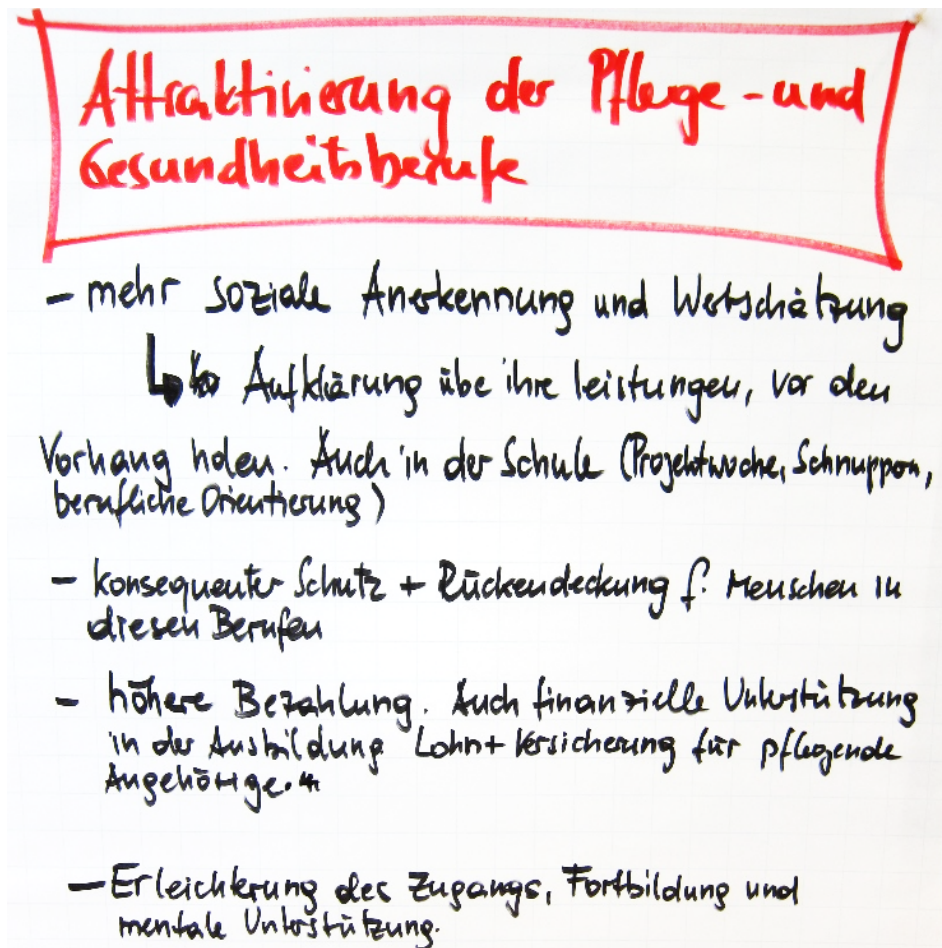 Attraktivierung der Pflege - und
Gesundheitsberufe
- mehr soziale Anerkennung und Wertschätzung
Aufklärung übe ihre leistungen, vor den
Vorhang holen. Auch in der Schule (Projektwoche, Schnuppern,
berufliche Orientierung)
- konsequenter Schutz + Rückendeckung f. Menschen in
diesen Berufen
- höhere Bezahlung. Auch finanzielle Unterstützung
in der Ausbildung Lohn + Versicherung für pflegende
Angehörige.
- Erleichterung des Zugangs, Fortbildung und
mentale Unterstützung.